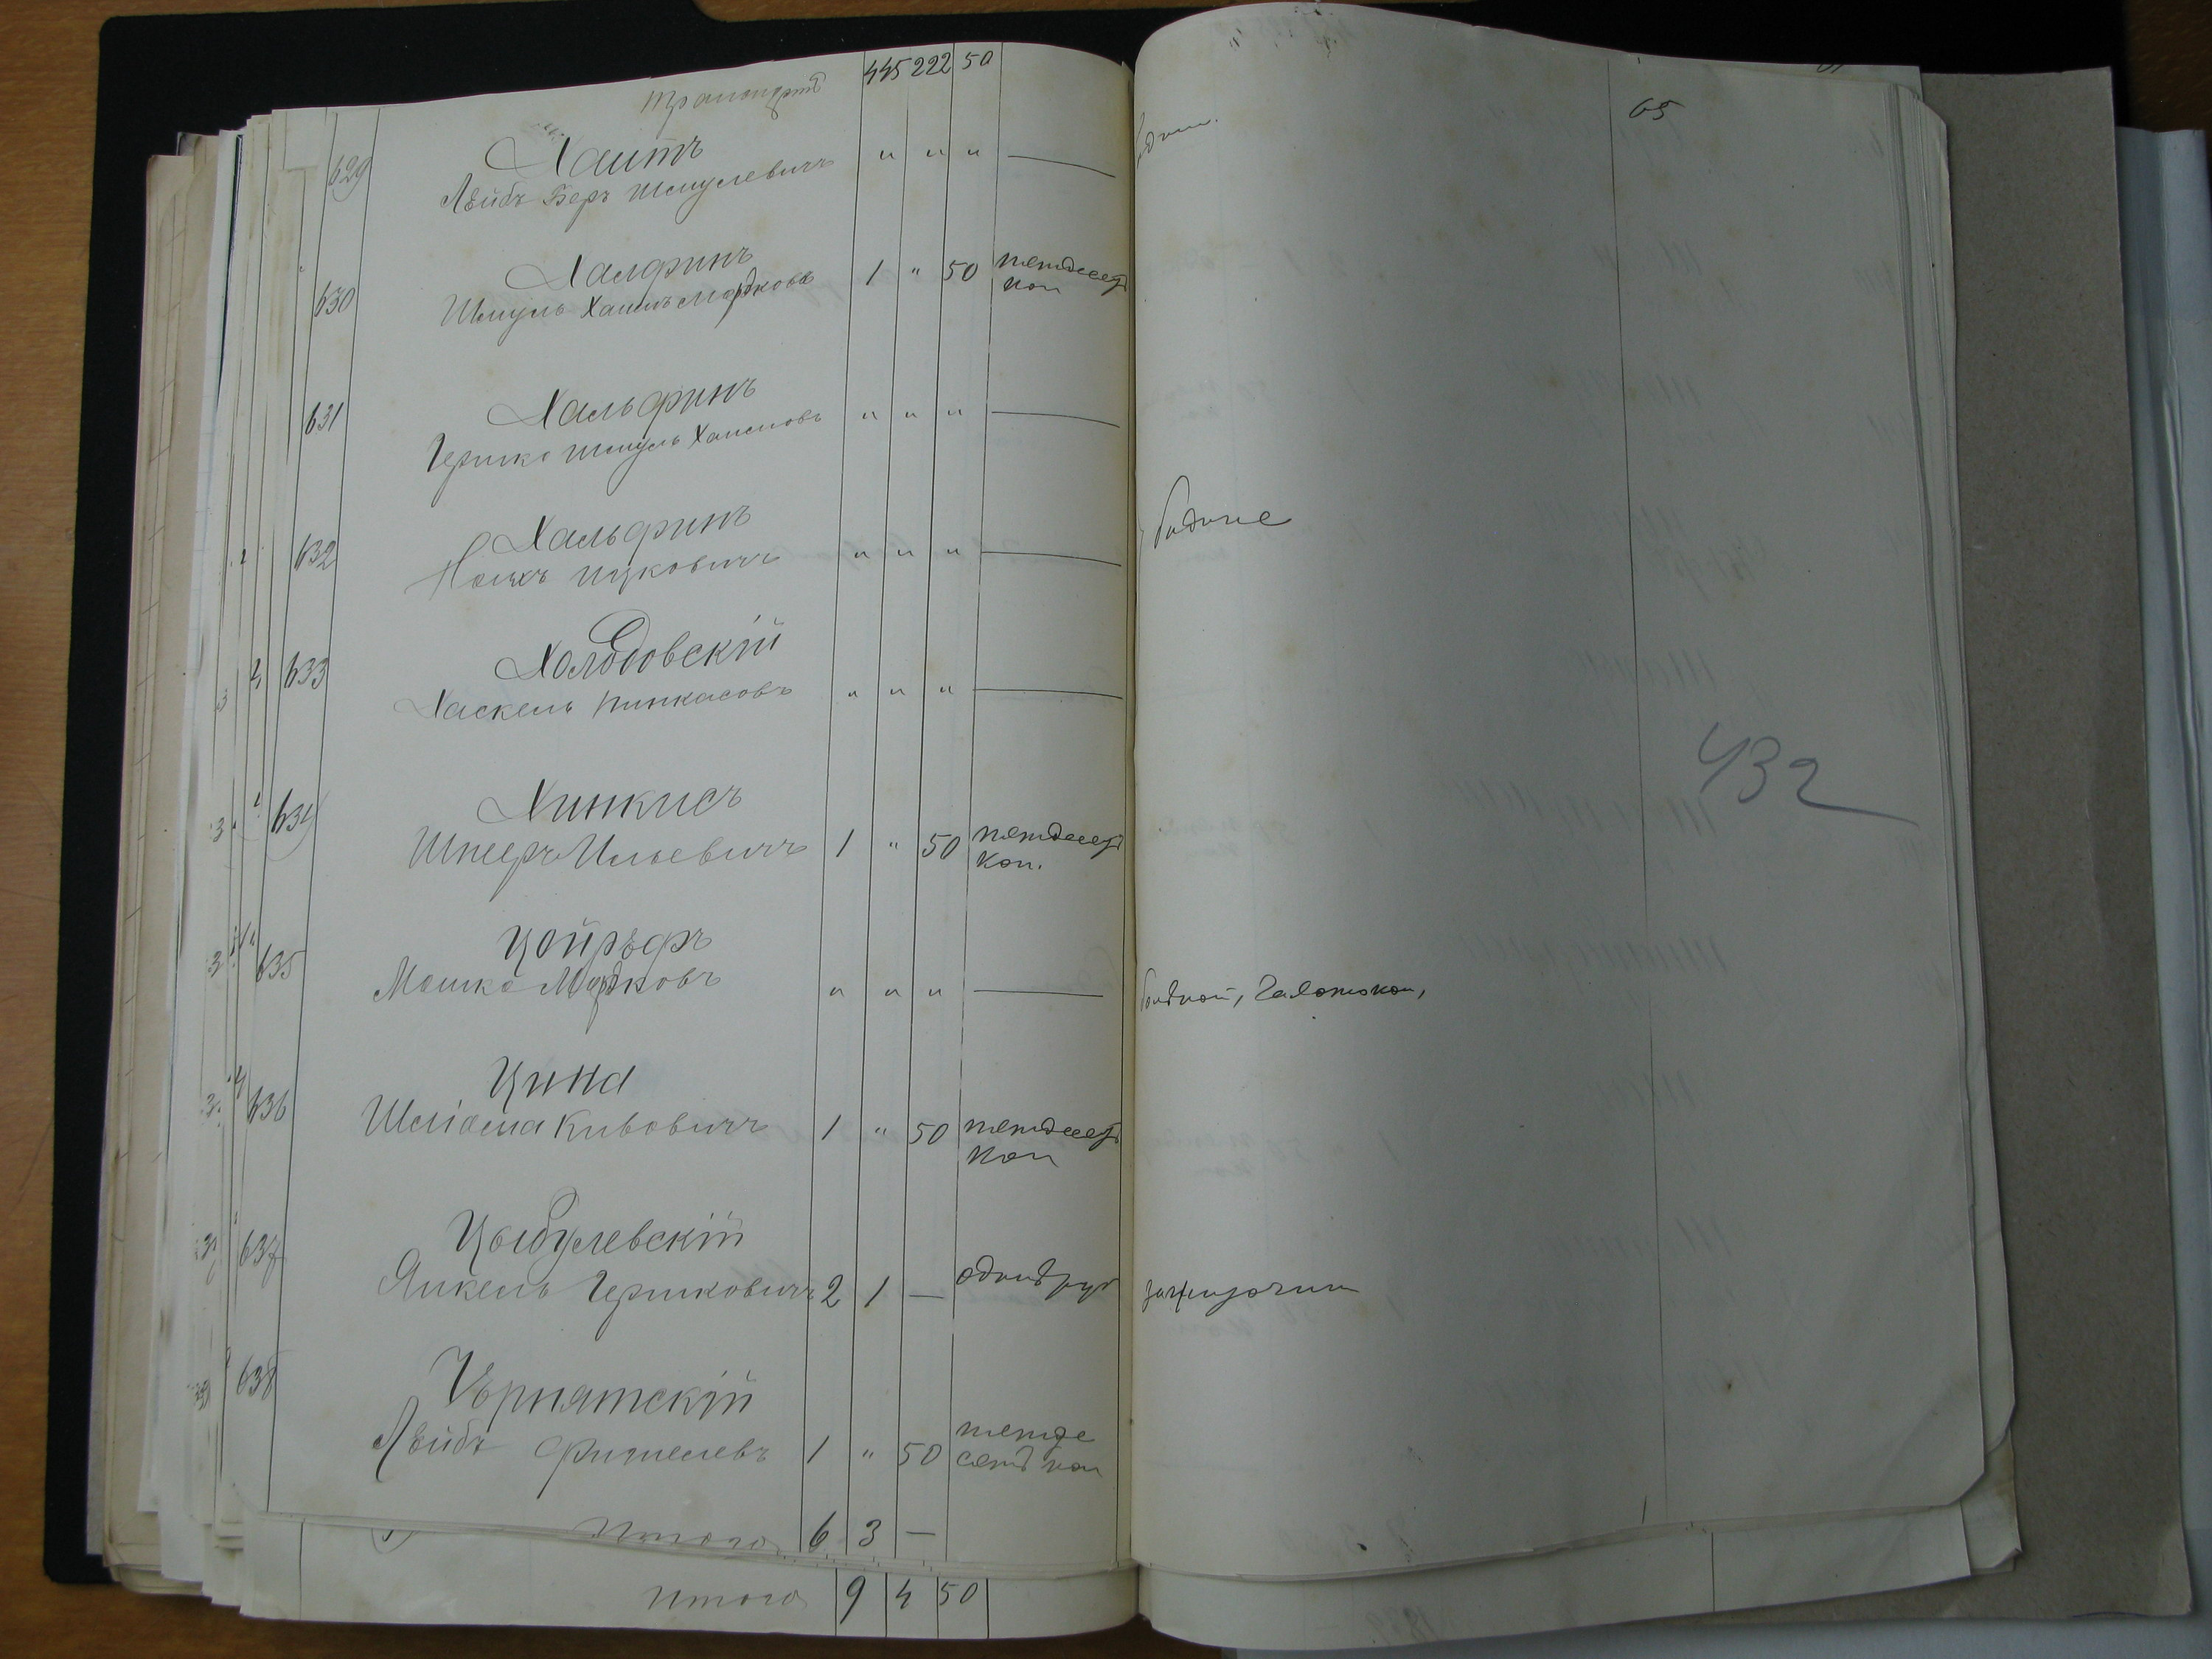 Транспортъ 445 222 50
65
629 Хаитъ
Лейбъ Беръ Шмулевичъ " " "
630 Халфинъ
Шмуль Хаимъ Мордковъ 1 " 50 петдесят
коп
631 Хальфинъ
Гершко Шмуль Хаимовъ " " "
632 Хальфинъ
Ицковичъ " " "
633 Холодовскій
Хаскель Пинкасовъ " " "
432
634 Хинкисъ
Шнееръ Ильевичъ 1 " 50 петдесят
коп.
635 Цойрефъ
Мошко Мордковъ " " "
636 Цина
Кивовичъ 1 " 50 петдесят
коп
637 Цыбулевскій
Янкель Гершковичъ 2 1 — одинъ руб
638 Чернятскій
Лейбъ Фишелевъ 1 " 50 петде
сятъ коп
Итого 6 3 —
Итого 9 4 50